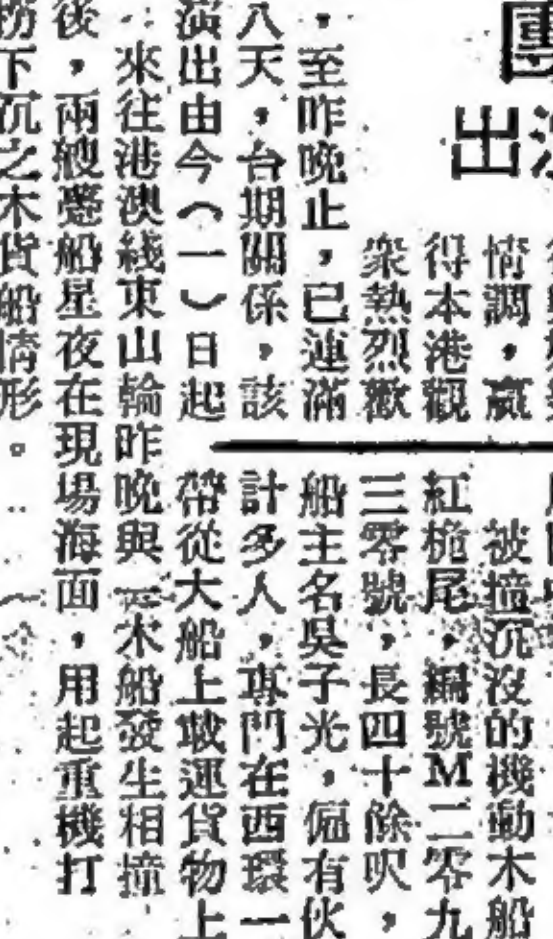 團
出
情調，贏
得本港觀
衆熱烈歡
，至昨晚止，已連滿
八天，台期關係，該
演出由今（一）日起
被撞沉沒的機動木船
紅桅尾，編號M二零九
三零號，長四十餘呎，
船主名吳子光，僱有伙
計多人，專門在西環一
帶從大船上載運貨物上
來往港澳綫東山輪昨晚與一木船發生相撞
後，兩艘躉船星夜在現場海面，用起重機打
下沉之木貨船情形。